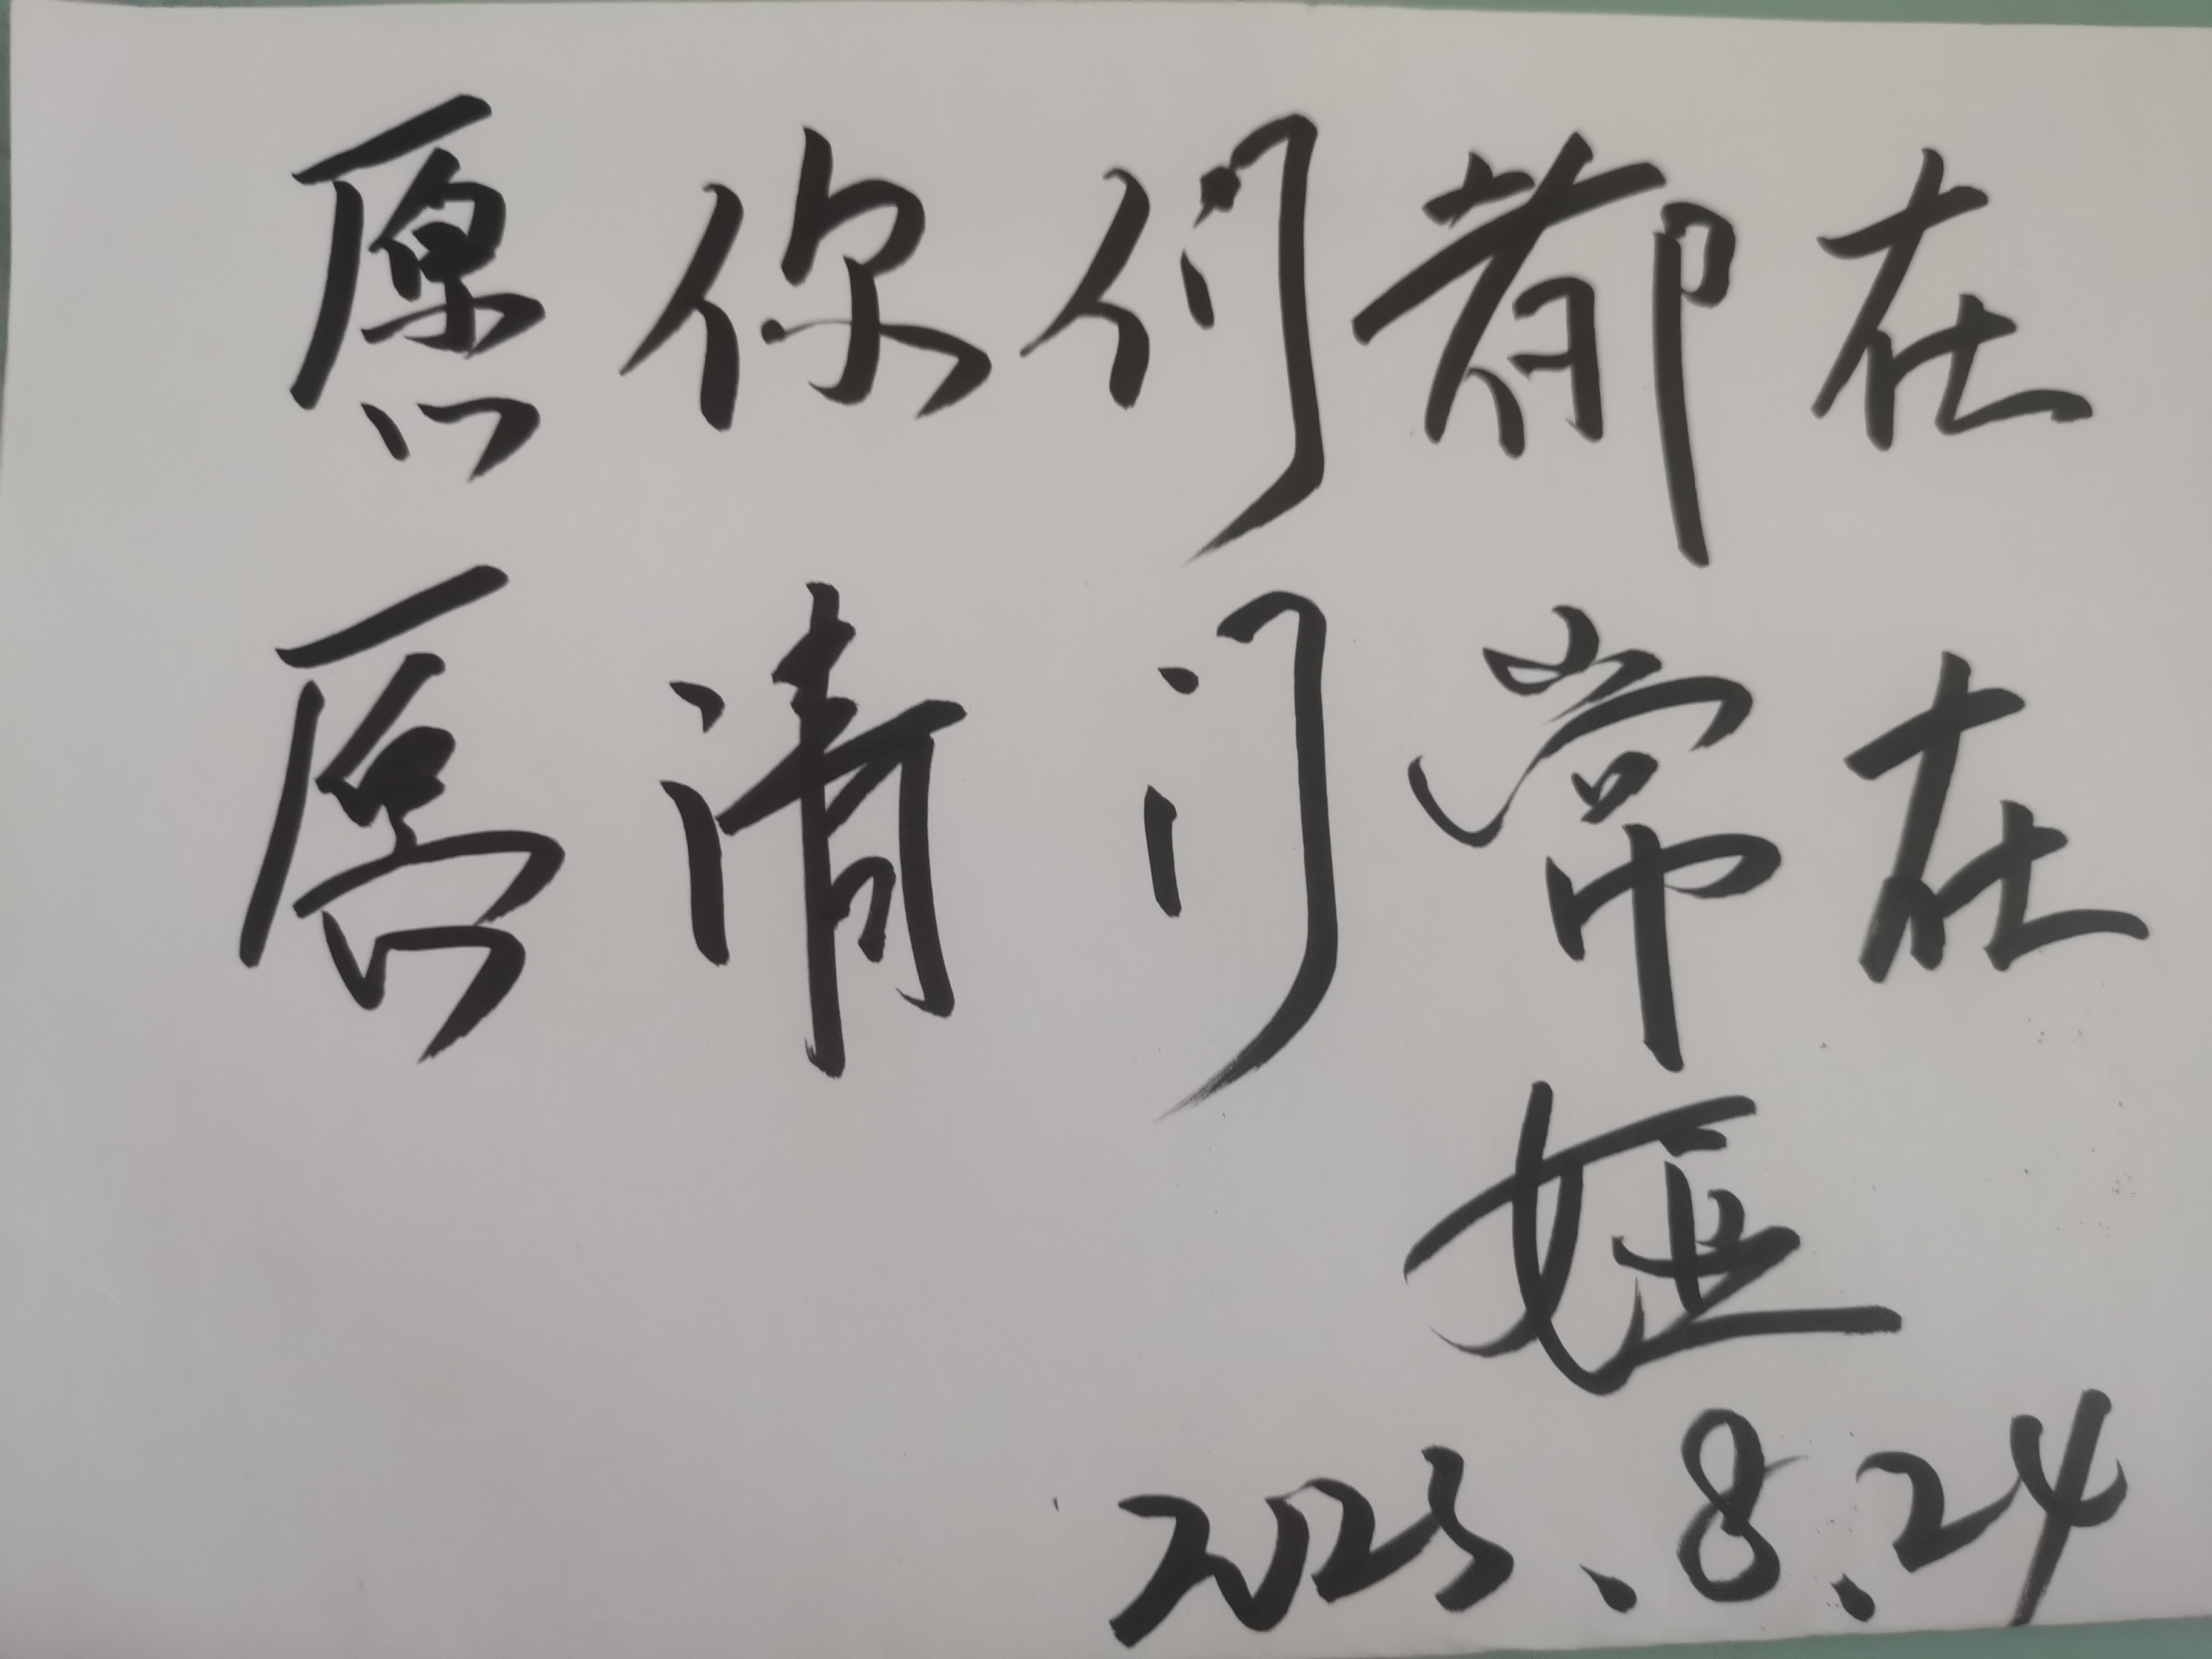 愿你们都在
愿清门常在
娅
2025.8.24